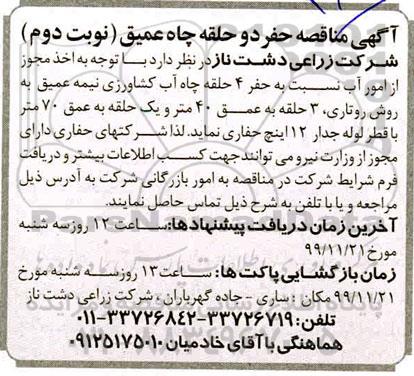 آگهی مناقصه حفر دو حلقه چاه عمیق (نوبت دوم)
شرکت زراعی دشت ناز در نظر دارد با توجه به اخذ مجوز
از امور آب نسبت به حفر ۴ حلقه چاه آب کشاورزی نیمه عمیق به
روش روتاری، ۳ حلقه به عمق ۴۰ متر و یک حلقه به عمق ۷۰ متر
با قطر لوله جدار ۱۲ اینچ حفاری نماید. لذا شرکتهای حفاری دارای
مجوز از وزارت نیرو می توانند جهت کسب اطلاعات بیشتر و دریافت
فرم شرایط شرکت در مناقصه به امور بازرگانی شرکت به آدرس ذیل
مراجعه و یا با تلفن به شرح ذیل تماس حاصل نمایند.
آخرین زمان دریافت پیشنهادها: ساعت ۱۲ روز سه شنبه
مورخ ۹۹/۱۱/۲۱
زمان بازگشایی پاکت ها: ساعت ۱۳ روز سه شنبه مورخ
۹۹/۱۱/۲۱ مکان: ساری - جاده گهرباران - شرکت زراعی دشت ناز
تلفن: ۳۳۷۲۶۷۱۹-۳۳۷۲۶۸۴۲-۰۱۱
هماهنگی با آقای خادمیان ۰۹۱۲۵۱۷۵۰۱۰